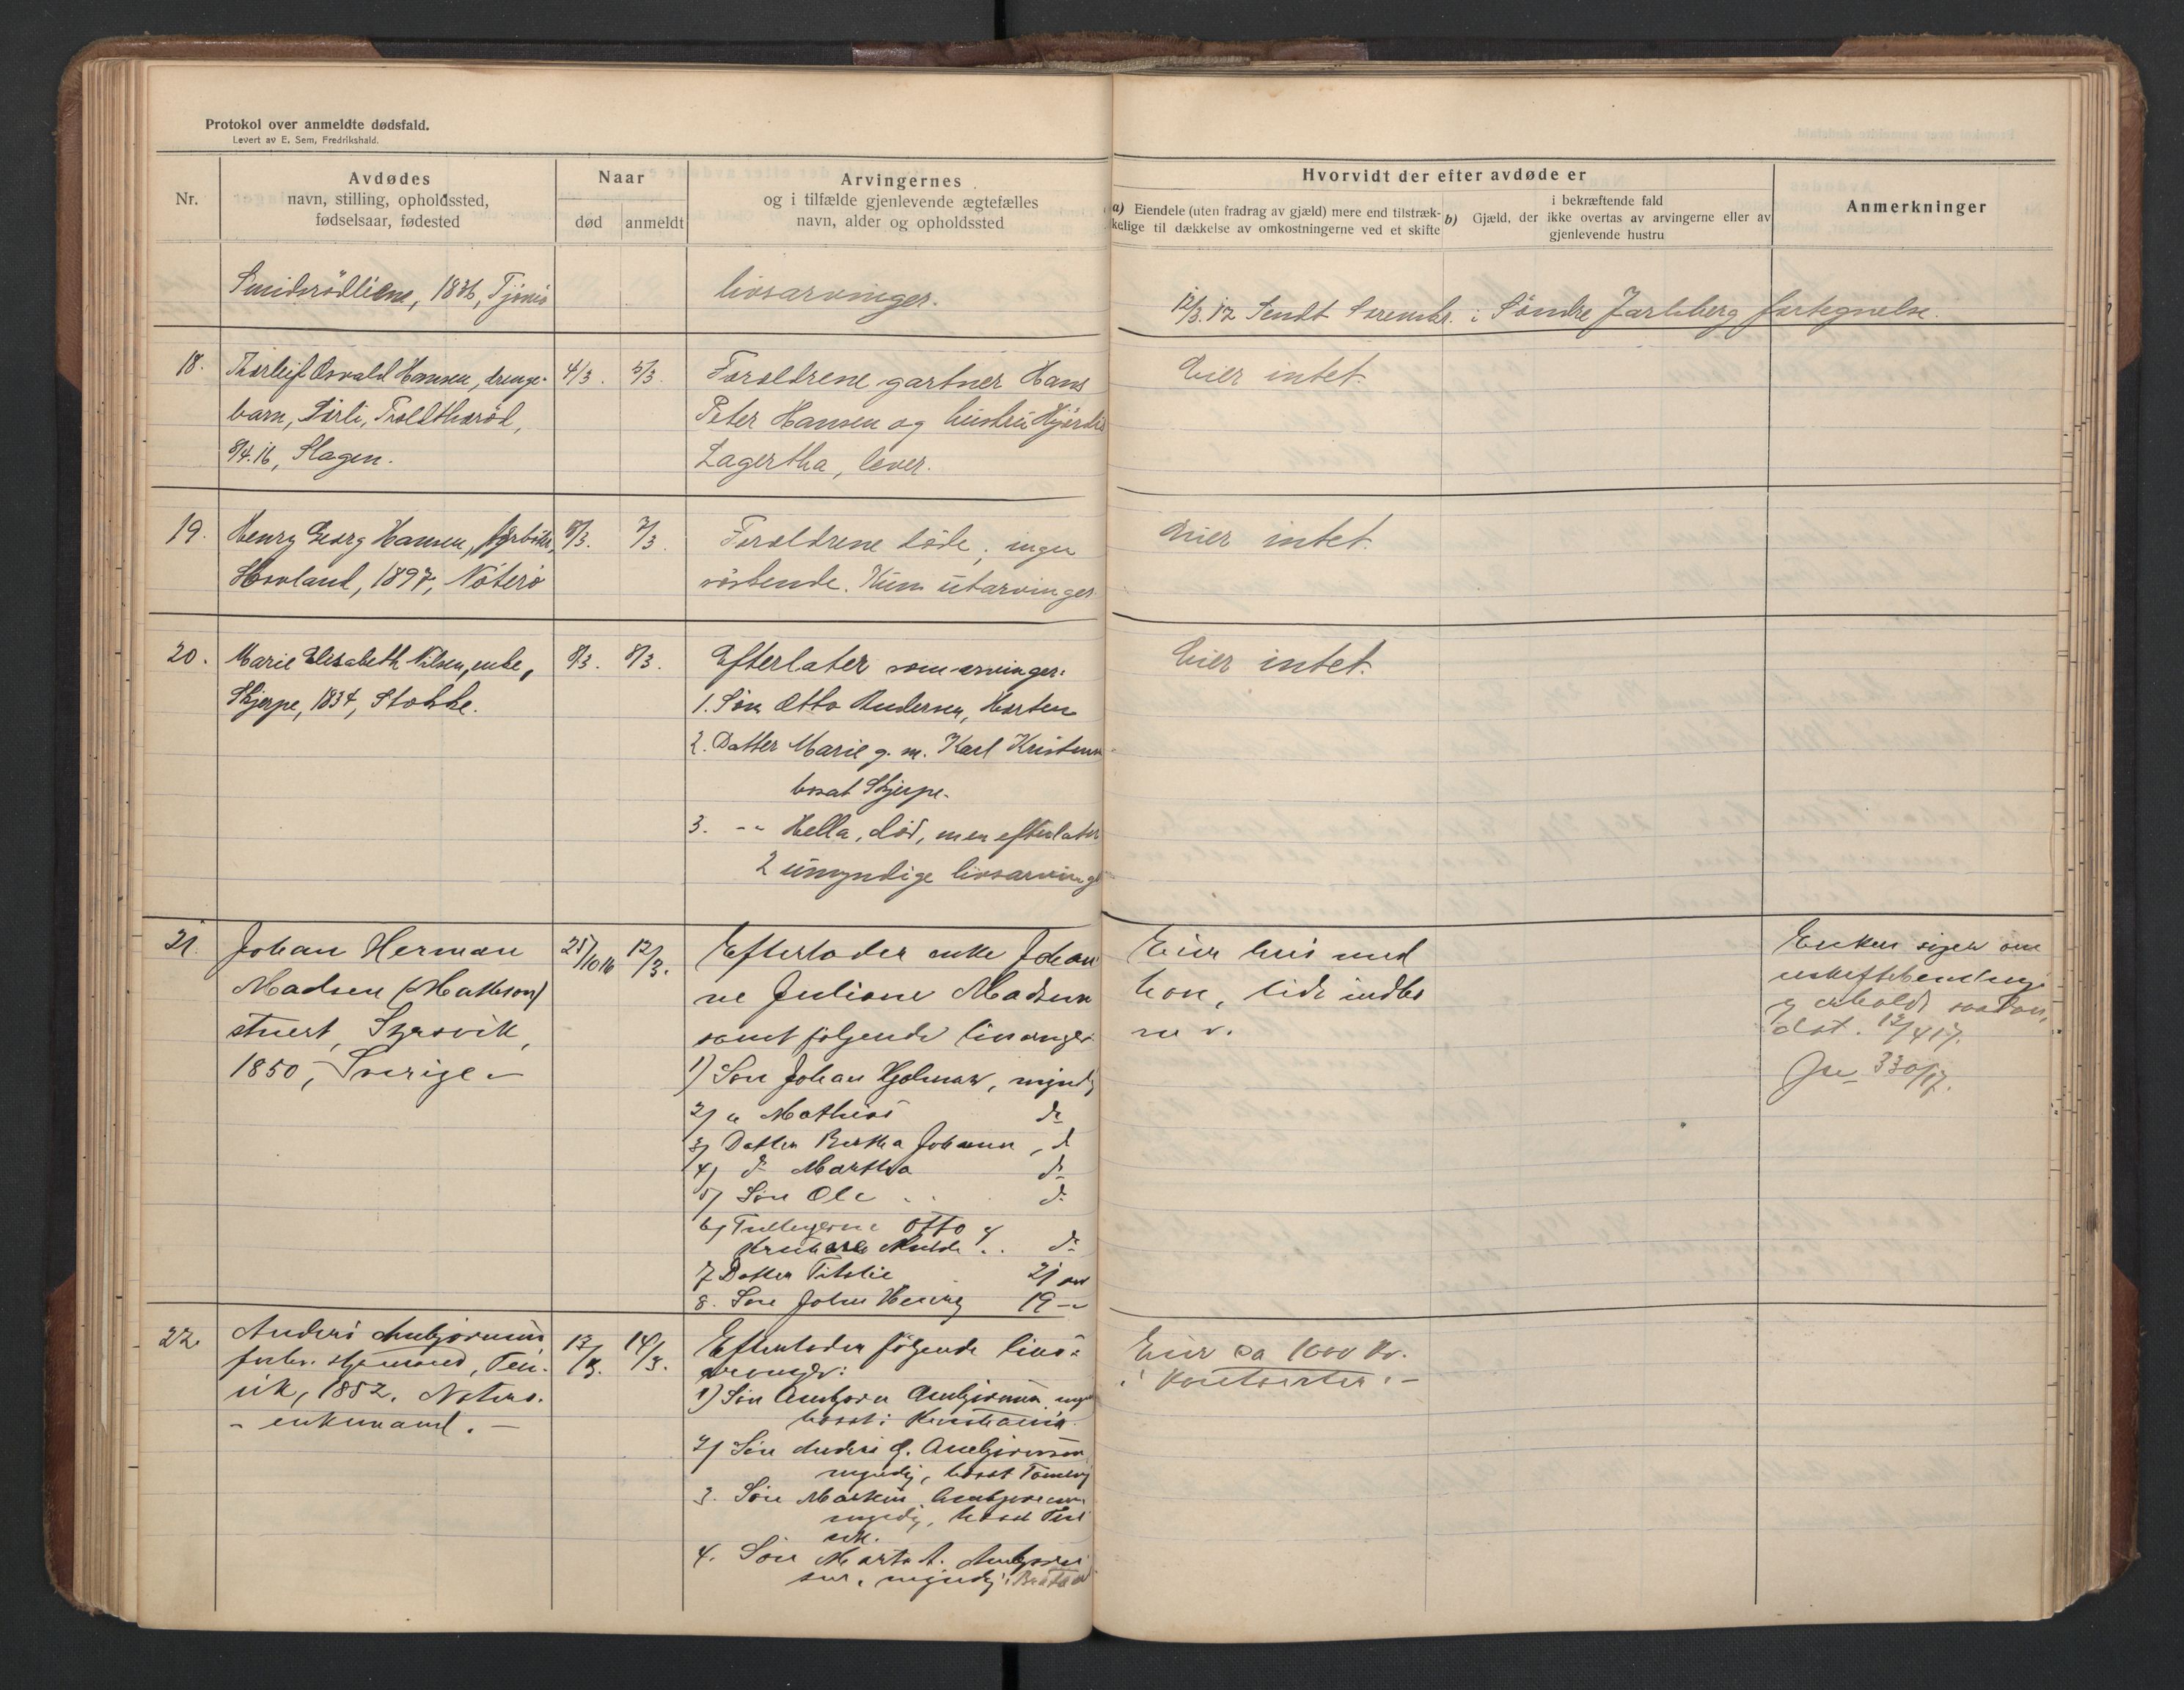 Protokol over anmeldte dødsfald.
Levert av E. Sem, Fredrikshald.
Nr.
Avdødes
navn, stilling, opholdssted,
fødselsaar, fødested
Naar
død
anmeldt
Arvingernes
og i tilfælde gjenlevende ægtefælles
navn, alder og opholdssted
Hvorvidt der efter avdøde er
a) Eiendele (uten fradrag av gjæld) mere end tilstræk-
kelige til dækkelse av omkostningerne ved et skifte
b) Gjæld, der
i bekræftende fald
ikke overtas av arvingerne eller av
gjenlevende hustru
Anmerkninger
1836, Tjømø
livsarvinger.
12/3.17 Sendt Sorenskr. i Søndre Jarlsberg fortegnelse.
18.
Thorleif Osvald Hansen, drenge-
barn, Dirli,
8/4.16, Slagen.
4/3.
5/3.
Forældrene gartner Hans
Peter Hansen og hustru Hjørdis
Lagertha, lever.
Eier intet.
19.
Henry Georg Hansen, fyrbøter,
Hovland, 1897, Nøterø
7/3.
Forældrene døde, ingen
søskende. Kun utarvinger
Eier intet.
20.
Marie Elisabeth Nilsen, enke,
Skjerpe, 1834, Stokke.
8/3.
8/3.
Efterlater som arvinger:
1. Søn Otto Andersen, Horten
2. Datter Marie g. m. Karl Kristensen
bosat Skjerpe.
3. -"- Hella, død, men efterlater
2 umyndige livsarving
Eier intet.
21.
Johan Herman
Madsen (Mattson)
stuert,
1850, Sverige -
25/10 16
12/3.
Efterlader enke Johan
ne Juliane Madsen
samt følgende livsarvger
1) Søn Johan Hjalmar, myndig
2) " Mathias do
3) Datter Bertha Johanne, d
4) do Martha do
5) Søn Ole do
6) Tvillingerne Otto &
do
7 Datter 21 aar
8. Søn John Henry 19 -"-
Eier hus med
have, lidt indbo
m v.
Enken siger om
uskiftebevilling
og erholdt saadan,
dat. 12/4 17.
Jnr 330/17.
22.
Anders Anbjørnsen
forhv. sjømand,
1852. Nøterø.
- enkemand. -
13/3.
14/3.
Efterlader følgende livs-
arvinger:
1) Søn Anbjørn Anbjørnsen, myn
bosat i Kristiania
2) Søn Anders G. Anbjørnsen,
myndig, bosat Tønsberg
3. Søn Martin Anbjørnsen
myndig, bosat
4. Søn A. Anbjørn
sen, myndig,
Eier ca 1000 Kr.
i kontanter. -